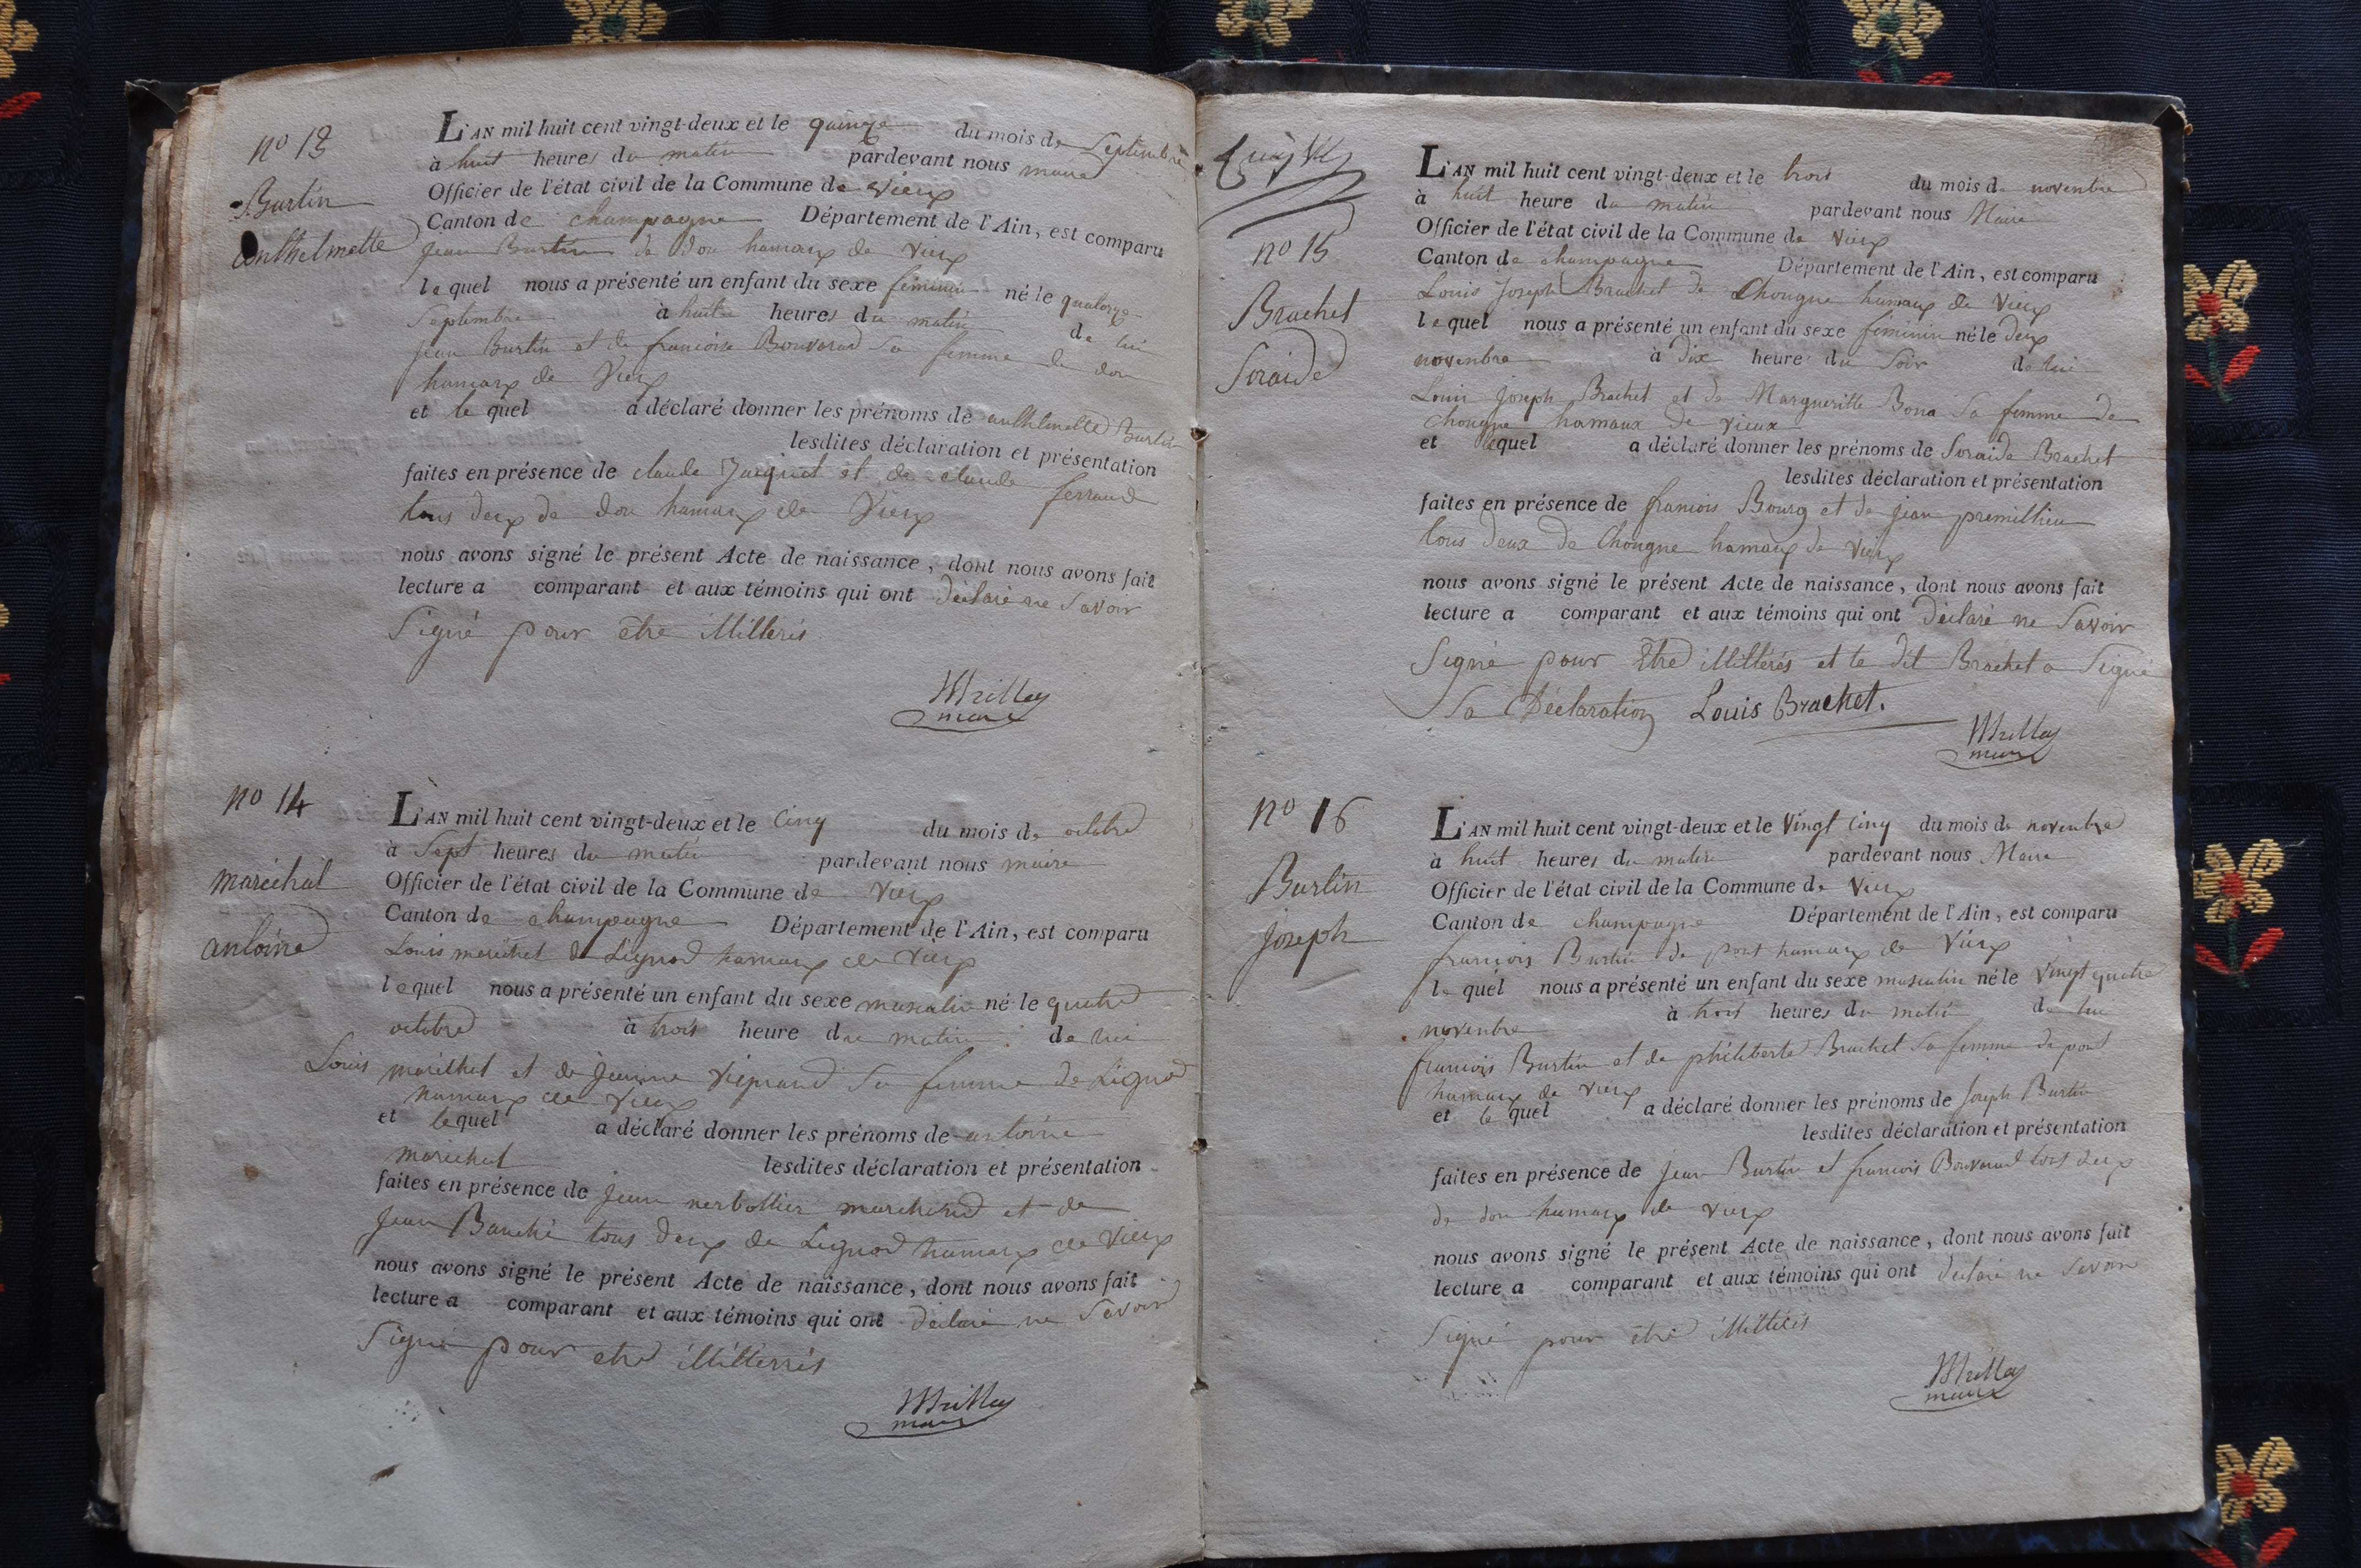 no 13
Burtin
anthelmette
L'AN mil huit cent vingt-deux et le quinze du mois de Septembre
à huit heures du matin pardevant nous maire
Officier de l'état civil de la Commune de Vieux
Canton de champagne Département de l'Ain, est comparu
jean Burtin de don hamaux de Vieux
lequel nous a présenté un enfant du sexe féminin né le quatorze
Septembre à huit heures du matin de lui
jean Burtin et de francoise Bouvard sa femme de don
hamaux de Vieux
et le quel a déclaré donner les prénoms de anthelmette Burtin
lesdites déclaration et présentation
faites en présence de claude Jacquet et de claude ferrand
tous deux de don hamaux de Vieux
nous avons signé le présent Acte de naissance, dont nous avons fait
lecture a comparant et aux témoins qui ont déclaré ne Savoir
Signé pour être illitteris
maire
no 14
maréchal
antoine
L'AN mil huit cent vingt-deux et le cinq du mois de octobre
à Sept heures du matin pardevant nous maire
Officier de l'état civil de la Commune de Vieux
Canton de champagne Département de l'Ain, est comparu
Louis maréchal de Lignod hamaux de Vieux
lequel nous a présenté un enfant du sexe masculin né le quatre
octobre à trois heure du matin de lui
Louis maréchal et de jeanne sa femme de Lignod
hamaux de Vieux
et lequel a déclaré donner les prénoms de antoine
maréchal lesdites déclaration et présentation
faites en présence de jean nerbollier marchand et de
jean Banché tous deux de Lignod hamaux de Vieux
nous avons signé le présent Acte de naissance, dont nous avons fait
lecture a comparant et aux témoins qui ont déclaré ne Savoir
Signé pour etre illitterrés
maire
no 15
Brachet
Soraide
L'AN mil huit cent vingt-deux et le trois du mois de novembre
à huit heure du matin pardevant nous Maire
Officier de l'état civil de la Commune de Vieux
Canton de champagne Département de l'Ain, est comparu
Louis joseph Brachet de Chongne hamaux de Vieux
lequel nous a présenté un enfant du sexe féminin né le deux
novembre à dix heures du Soir de lui
Louis joseph Brachet et de Margueritte Bona Sa femme de
Chongne hamaux de Vieux
et lequel a déclaré donner les prénoms de Soraide Brachet
lesdites déclaration et présentation
faites en présence de francois Bourg et de jean premillieu
tous deux de Chongne hamaux de Vieux
nous avons signé le présent Acte de naissance, dont nous avons fait
lecture a comparant et aux témoins qui ont déclaré ne Savoir
Signé pour Etre illittérés et le dit Brachet a Signé
Sa Déclaration Louis Brachet.
maire
no 16
Burtin
joseph
L'AN mil huit cent vingt-deux et le Vingt cinq du mois de novembre
à huit heures du matin pardevant nous Maire
Officier de l'état civil de la Commune de Vieux
Canton de champagne Département de l'Ain, est comparu
francois Burtin de pont hamaux de Vieux
le quel nous a présenté un enfant du sexe masculin né le Vingt quatre
novembre à trois heures du matin de lui
francois Burtin et de philiberte Brachet Sa femme de pont
hamaux de Vieux
et le quel a déclaré donner les prénoms de joseph Burtin
lesdites déclaration et présentation
faites en présence de jean Burtin et francois Bouvard tous deux
de don hamaux de Vieux
nous avons signé le présent Acte de naissance, dont nous avons fait
lecture a comparant et aux témoins qui ont déclaré ne Savoir
Signé pour être illittérés
maire